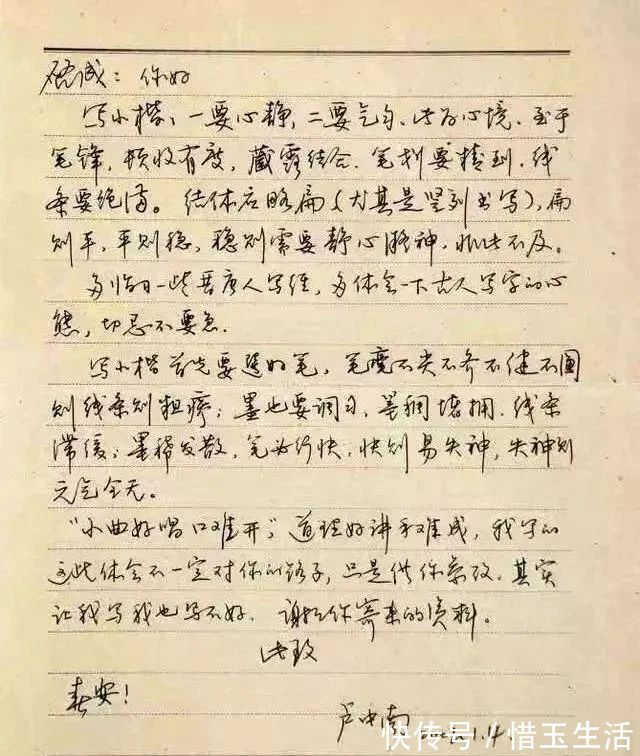 诚：你好
写小楷，一要心静，二要气匀，此为心境。至于
笔锋，顿收有度，藏露结合，笔划要精到，线
条要饱满。结体应略扁（尤其是竖列书写），扁
则平，平则稳，稳则需要静心凝神，非此不及。
多临习一些晋唐人写经，多体会一下古人写字的心
态，切忌不要急。
写小楷首先要选好笔，笔毫不尖不齐不健不圆
则线条则粗疏；墨也要调匀，墨稠堵拥，线条
滞缓；墨稀发散，笔必行快，快则易失神，失神则
元气全无。
“小曲好唱口难开”，道理好讲手难成，我写的
这些体会不一定对你的路子，只是供你参考。其实
让我写我也写不好。谢谢你寄来的资料。
此致
春安！
卢中南
快传号/惜玉生活